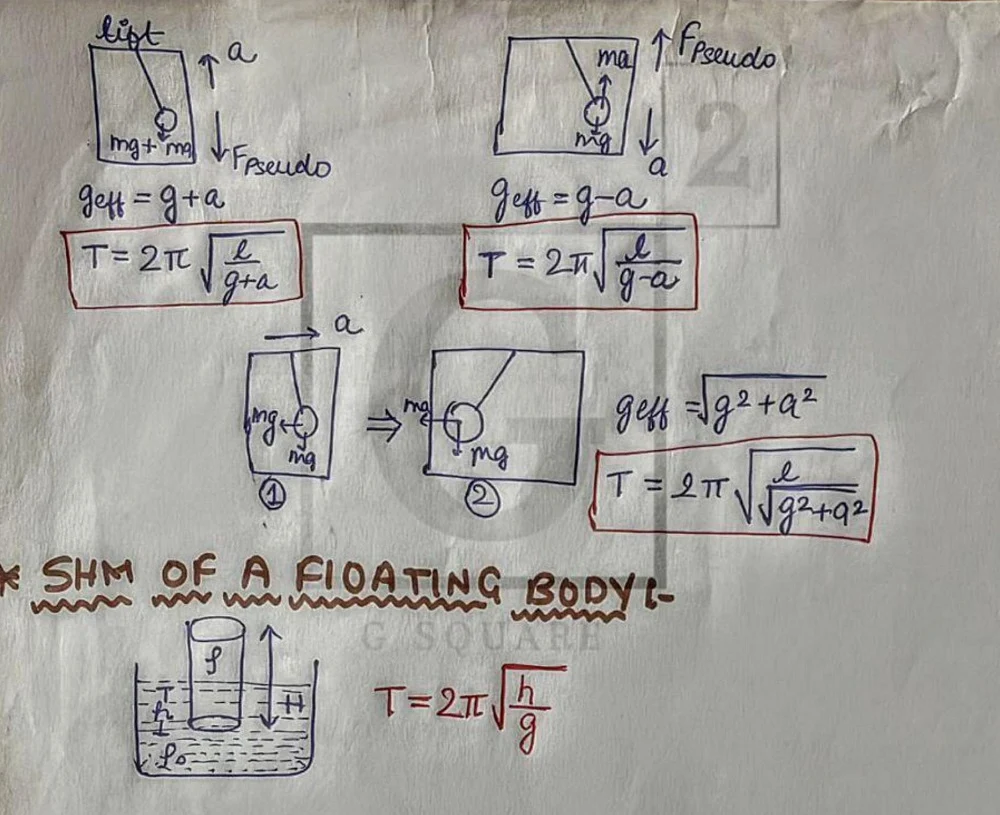 lift
a
mg + ma
FPseudo
geff = g+a
T = 2π √(l/(g+a))
ma
FPseudo
mg
a
geff = g-a
T = 2π √(l/(g-a))
2
a
mg
mg
1
⇒
ma
mg
2
geff = √(g²+a²)
T = 2π √(l/√(g²+a²))
* SHM OF A FlOATING BODY:-
G SQUARE
ρ
h
H
ρo
T = 2π √(h/g)